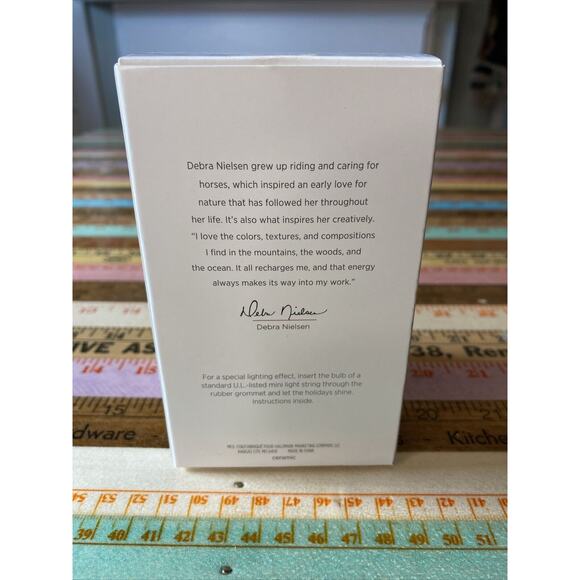 Debra Nielsen grew up riding and caring for
horses, which inspired an early love for
nature that has followed her throughout
her life. It's also what inspires her creatively.
"I love the colors, textures, and compositions
I find in the mountains, the woods, and
the ocean. It all recharges me, and that energy
always makes its way into my work."
Debra Nielsen
Debra Nielsen
For a special lighting effect, insert the bulb of a
standard U.L.-listed mini light string through the
rubber grommet and let the holidays shine.
Instructions inside.
MFD. FOR/FABRIQUÉ POUR HALLMARK MARKETING COMPANY, LLC
KANSAS CITY, MO 64141 MADE IN CHINA
ceramic
VE AS
38, Ren
14 15
dware
Kitche
54 53 52 51 50 49 48 47 46 45 44 43 42 41
39 40 41 42 43 44 45 46 47 48 49 50 51